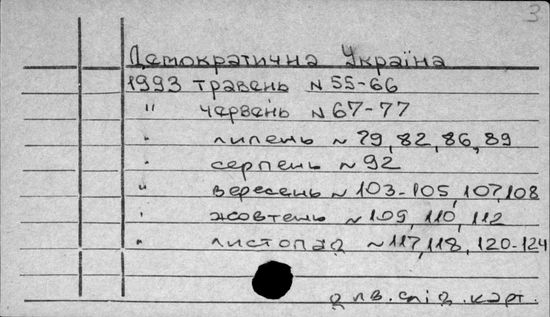 3
Демократична Україна
1993 травень N 55-66
" червень N 67-77
" липень N 79, 82, 86, 89
" серпень N 92
" вересень N 103-105, 107, 108
" жовтень N 109, 110, 112
" листопад N 117, 118, 120-124
див. слід. карт.